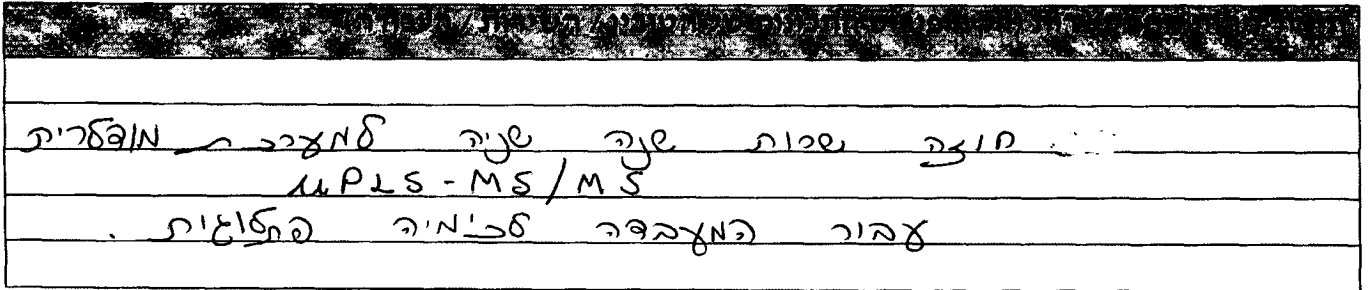 חוזה שרות שנה שניה למערכת מודולרית
µPLS-MS/MS
עבור המעבדה לכימיה פתלוגית .